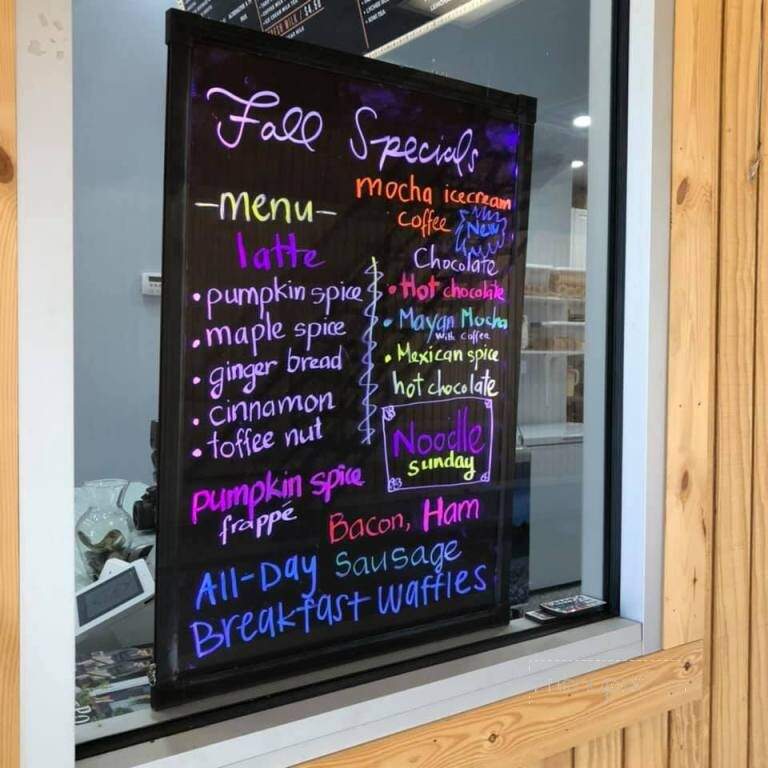 Fall Specials
-menu-
latte
• pumpkin spice
• maple spice
• ginger bread
• cinnamon
• toffee nut
pumpkin spice
frappé
mocha icecream
coffee New
Chocolate
• Hot chocolate
• Mayan Mocha
with coffee
• Mexican spice
hot chocolate
Noodle
sunday
Bacon, Ham
All-Day Sausage
Breakfast Waffles